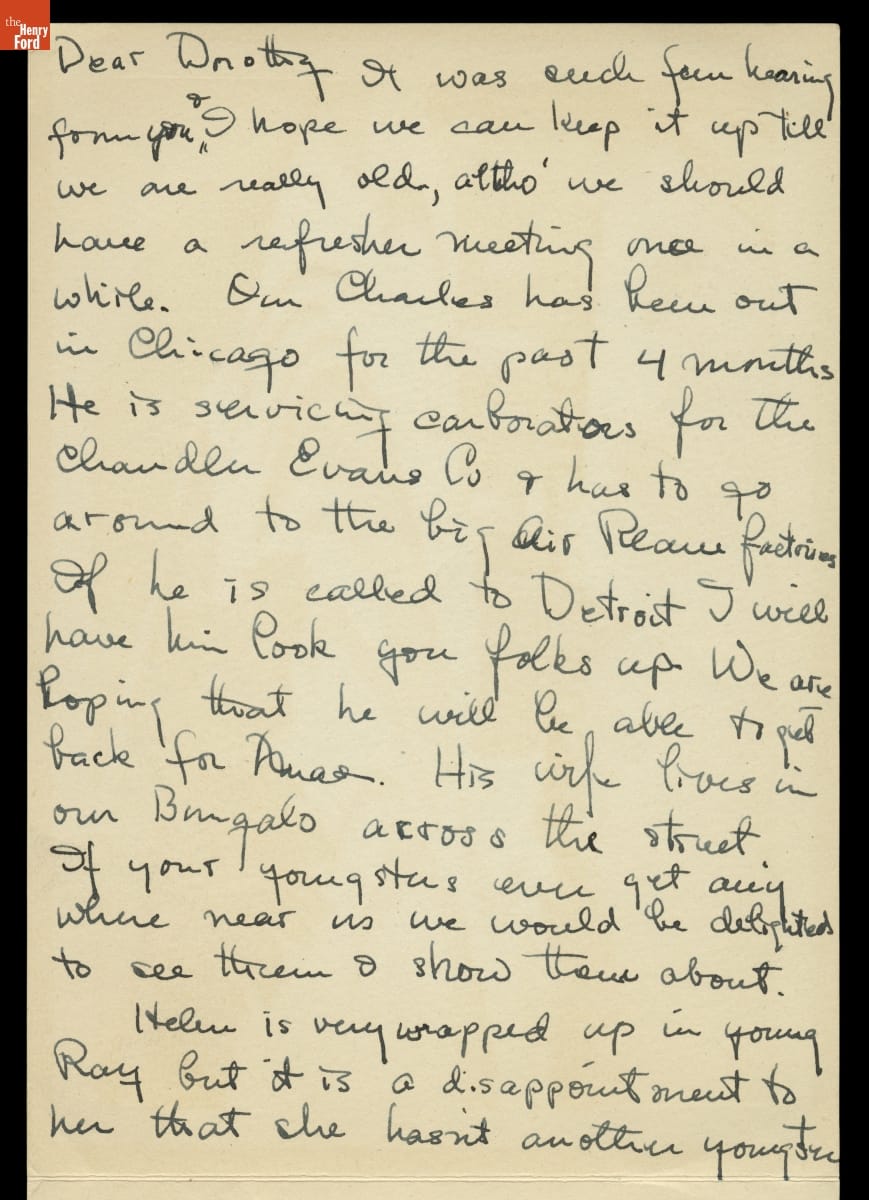 the
Henry
Ford
Dear Dorothy It was such fun hearing
form you & I hope we can keep it up till
we are really old, altho' we should
have a refresher meeting once in a
while. Our Charles has been out
in Chicago for the past 4 months
He is servicing carborators for the
Chandler Evans Co & has to go
around to the big Air Plane factories
If he is called to Detroit I will
have him look you folks up We are
hoping that he will be able to get
back for Xmas. His wife lives in
our Bungalo across the street
If your youngsters ever get any
where near us we would be delighted
to see them & show them about.
Helen is very wrapped up in young
Ray but it is a disappointment to
her that she hasn't another youngster